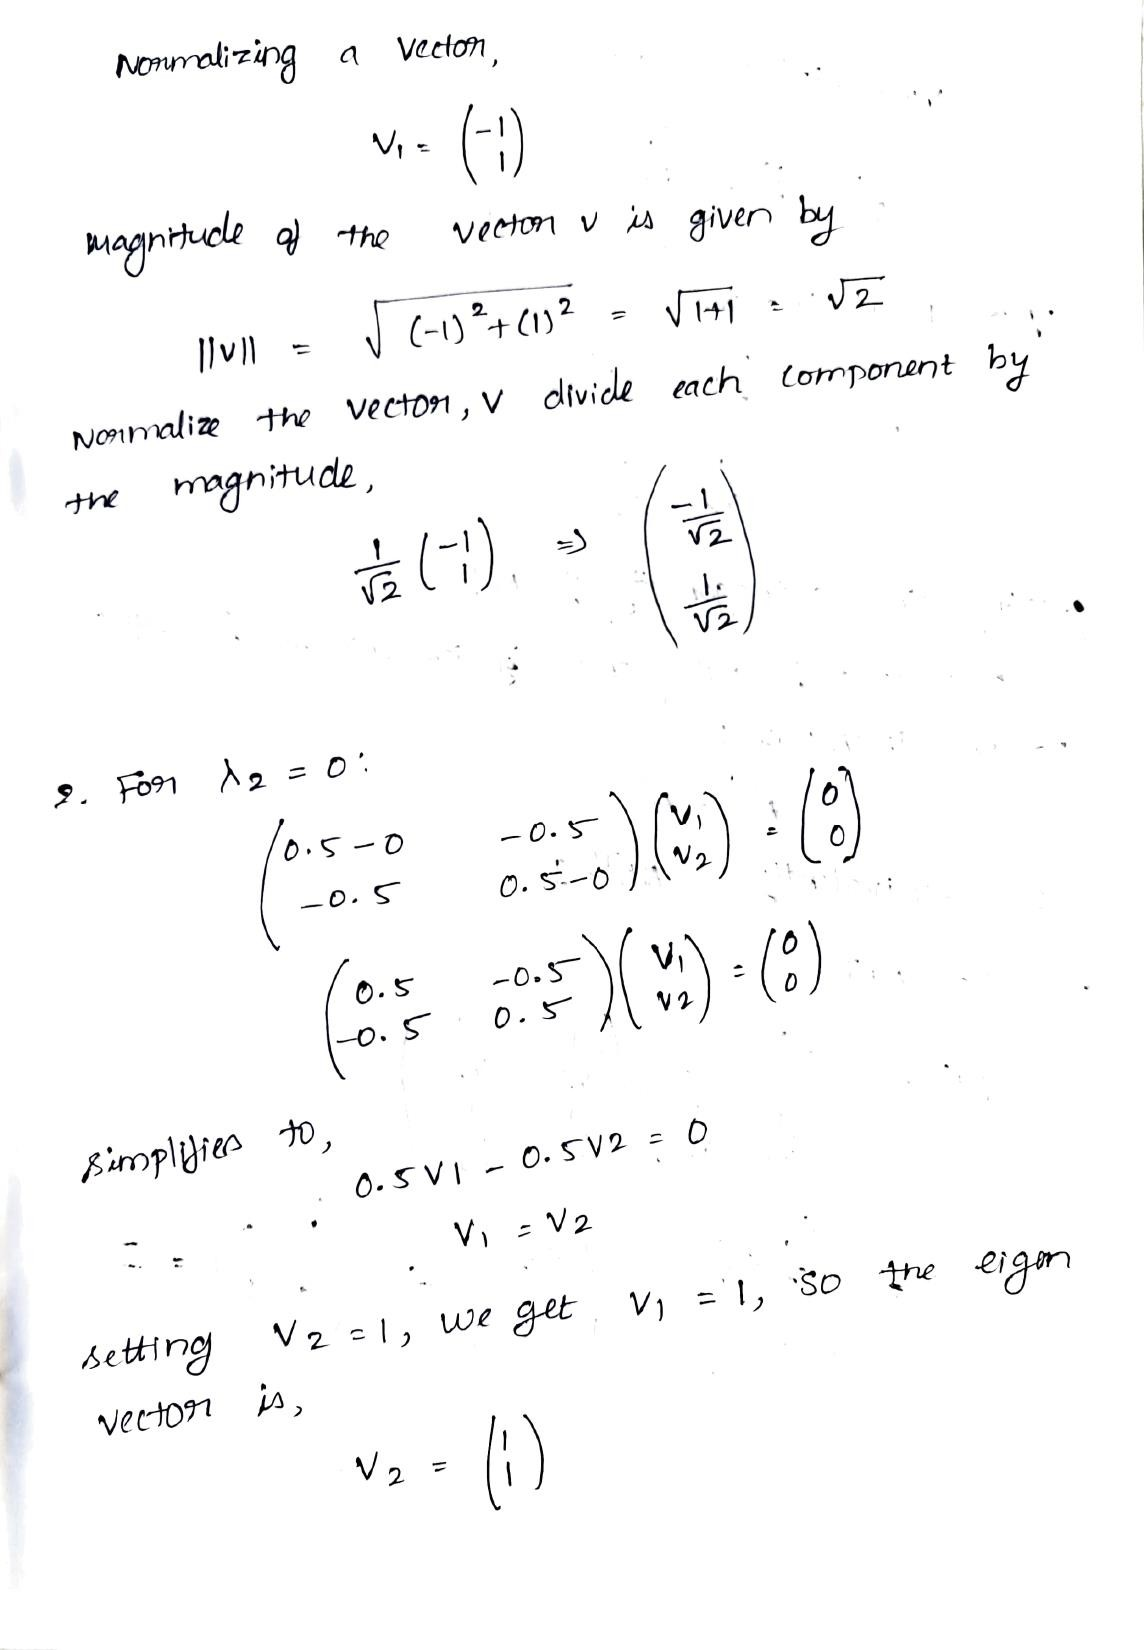 Normalizing a vector,
V₁ = (-1 1)
magnitude of the vector v is given by
||v|| = √((-1)²+(1)²) = √1+1 = √2
Normalize the vector, v divide each component by
the magnitude,
1/√2 (-1 1) ⇒ (-1/√2 1/√2)
2. For λ2 = 0:
(0.5-0 -0.5
-0.5 0.5-0) (V₁ V₂) = (0 0)
(0.5 -0.5
-0.5 0.5) (V₁ V2) = (0 0)
simplifies to,
0.5V1 - 0.5V2 = 0
V₁ = V2
setting V2 = 1, we get V₁ = 1, so the eigen
vector is,
V2 = (1 1)